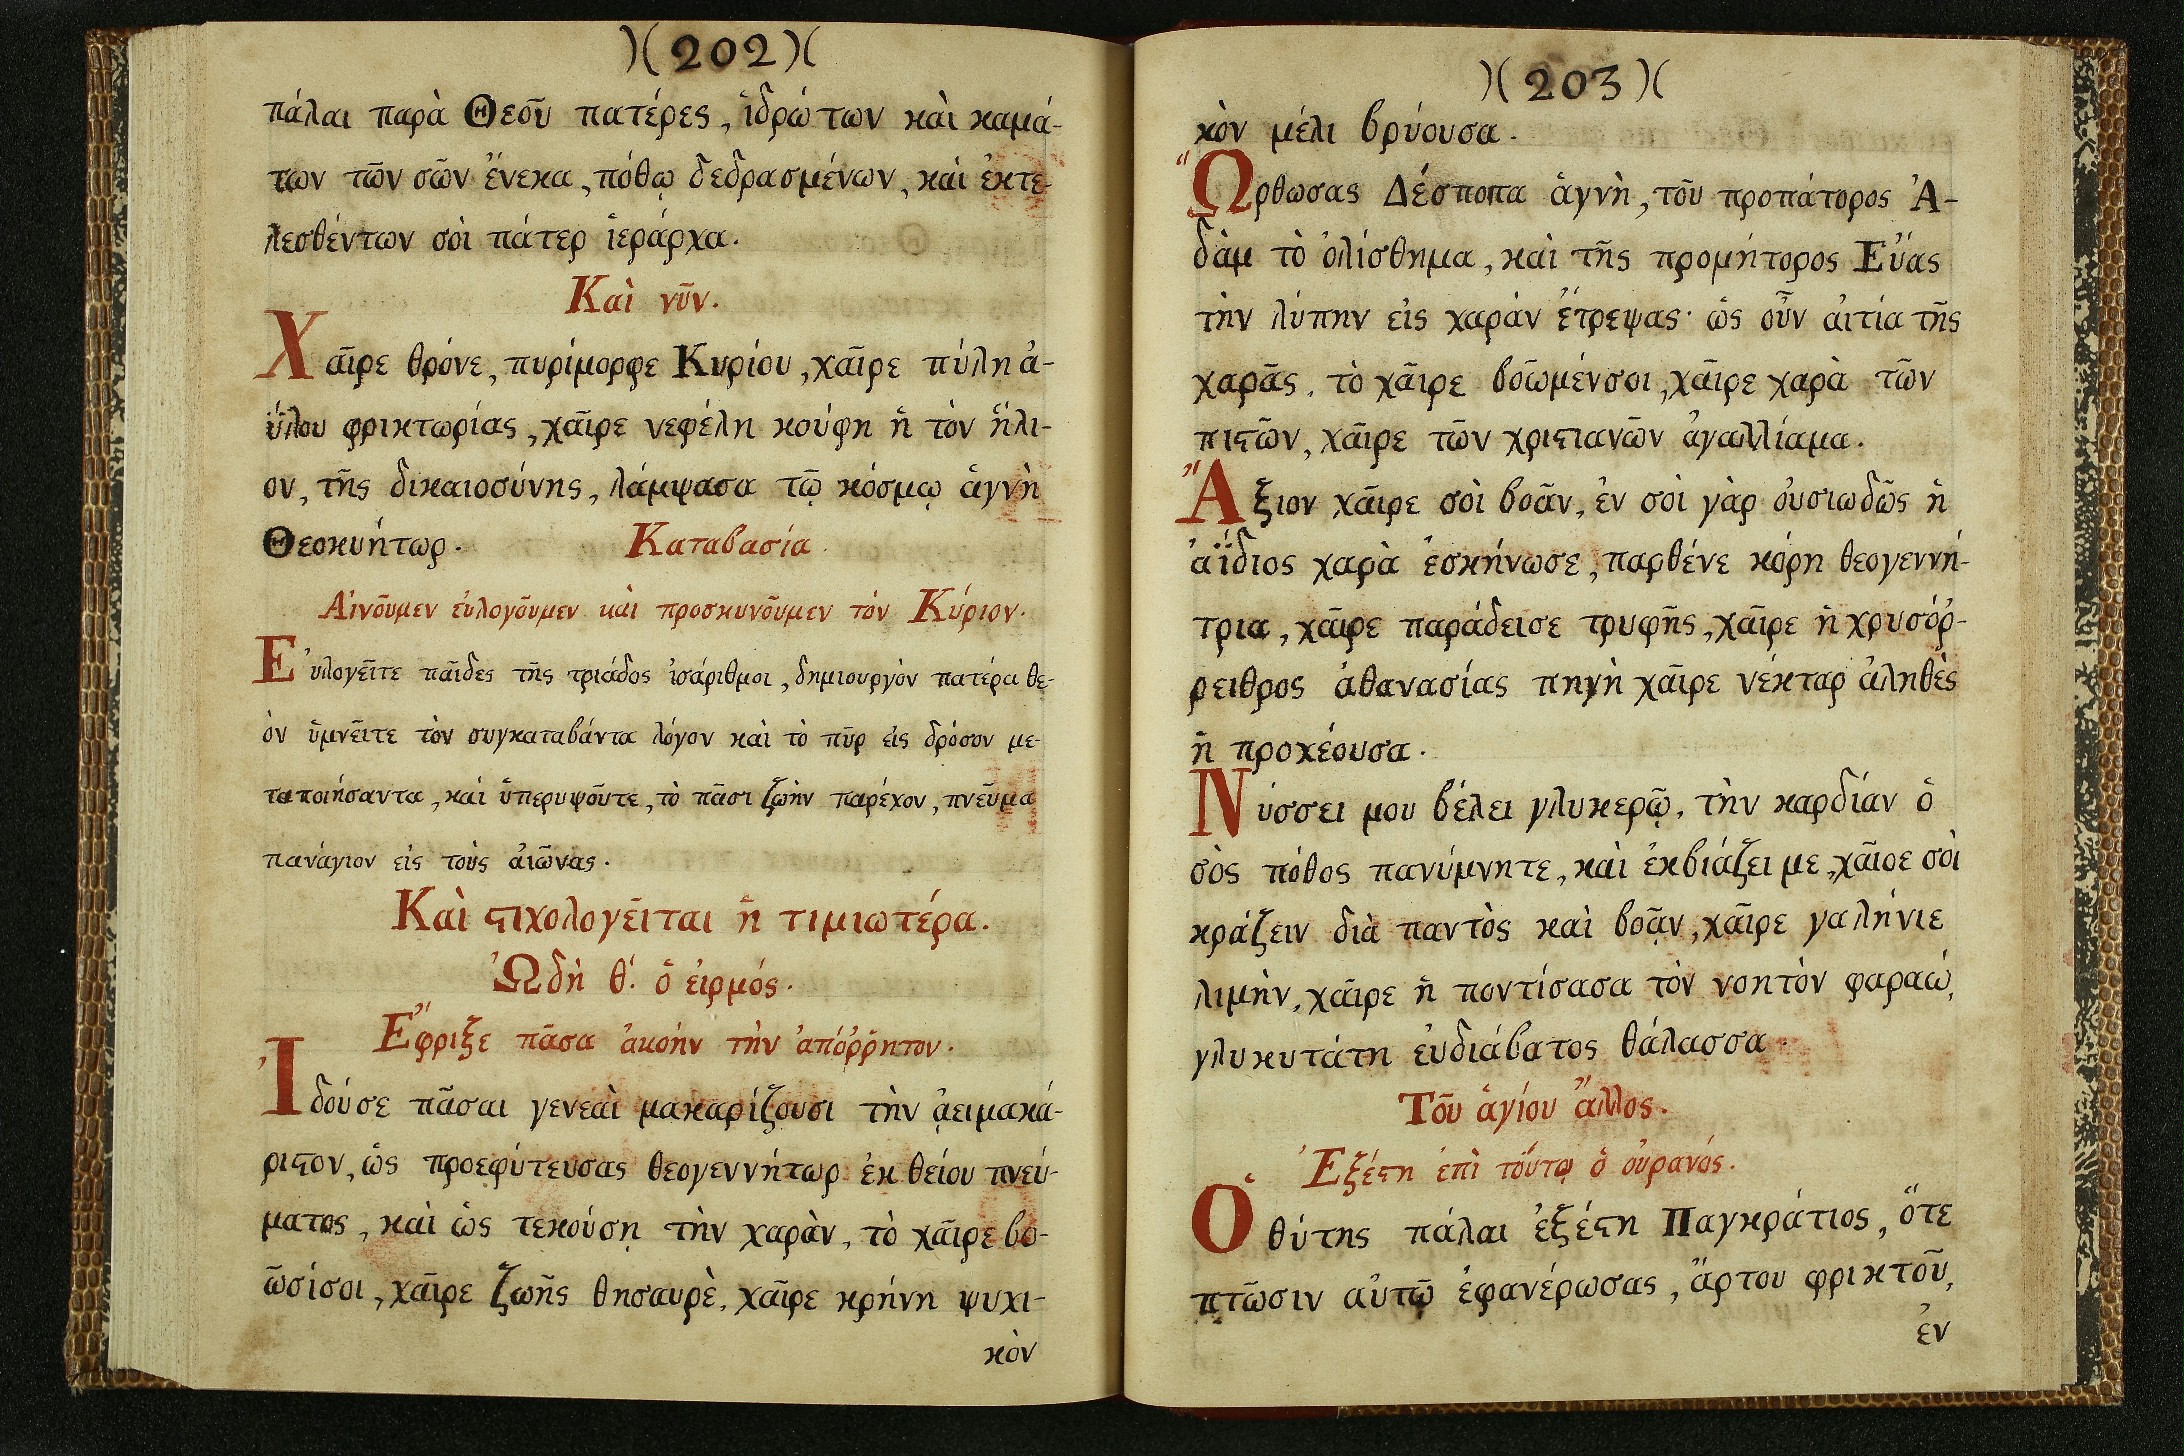 )(202)(
πάλαι παρὰ Θεοῦ πατέρες, ἱδρώτων καὶ καμά-
των τῶν σῶν ἕνεκα, πόθῳ δεδρασμένων, καὶ ἐκτε-
λεσθέντων σοὶ πάτερ ἱεράρχα.
Καὶ νῦν.
Χαῖρε θρόνε, πυρίμορφε Κυρίου, χαῖρε πύλη ἀ-
ύλου φρικτωρίας, χαῖρε νεφέλη κούφη ἡ τὸν ἥλι-
ον, τῆς δικαιοσύνης, λάμψασα τῷ κόσμῳ ἁγνὴ
Θεοκυήτωρ. Καταβασία.
Αἰνοῦμεν εὐλογοῦμεν καὶ προσκυνοῦμεν τόν Κύριον.
Εὐλογεῖτε παῖδες τῆς τριάδος ἰσάριθμοι, δημιουργὸν πατέρα θε-
ὸν ὑμνεῖτε τὸν συγκαταβάντα λόγον καὶ τὸ πῦρ εἰς δρόσον με-
ταποιήσαντα, καί ὑπερυψοῦτε, τὸ πᾶσι ζωὴν παρέχον, πνεῦμα
πανάγιον εἰς τοὺς αἰῶνας.
Καὶ ϛιχολογεῖται ἡ τιμιωτέρα.
Ὠδὴ θ΄. ὁ εἱρμός.
Εφριξε πᾶσα ἀκοὴν τὴν ἀπόῤῥητον.
Ἰδού σε πᾶσαι γενεαὶ μακαρίζουσι τὴν ἀειμακά-
ριϛον, ὡς προεφύτευσας θεογεννήτωρ ἐκ θείου πνεύ-
ματος, καὶ ὡς τεκούσῃ τὴν χαρὰν, τὸ χαῖρε βο-
ῶσίσοι, χαῖρε ζωῆς θησαυρὲ, χαῖρε κρήνη ψυχι-
κὸν
)(203)(
κὸν μέλι βρύουσα.
Ὤρθωσας Δέσποπα ἁγνὴ, τοῦ προπάτορος Ἀ-
δὰμ τὸ ὀλίσθημα, καὶ τῆς προμήτορος Εὔας
τὴν λύπην εἰς χαρὰν ἔτρεψας· ὡς οὖν αἰτία τῆς
χαρᾶς, τὸ χαῖρε βοῶμένσοι, χαῖρε χαρὰ τῶν
πιϛῶν, χαῖρε τῶν χριϛιανῶν ἀγαλλίαμα.
Ἄξιον χαῖρε σοὶ βοᾶν, ἐν σοὶ γὰρ οὐσιωδῶς ἡ
ἀΐδιος χαρὰ ἐσκήνωσε, παρθένε κόρη θεογεννή-
τρια, χαῖρε παράδεισε τρυφῆς, χαῖρε ἡ χρυσόῤ-
ρειθρος ἀθανασίας πηγὴ χαῖρε νέκταρ ἀληθὲς
ἡ προχέουσα.
Νύσσει μου βέλει γλυκερῷ, τὴν καρδίαν ὁ
σὸς πόθος πανύμνητε, καὶ ἐκβιάζει με, χαῖρε σοὶ
κράζειν διὰ παντὸς καὶ βοᾷν, χαῖρε γαλήνιε
λιμὴν, χαῖρε ἡ ποντίσασα τὸν νοητὸν φαραώ,
γλυκυτάτη εὐδιάβατος θάλασσα.
Τοῦ ἁγίου ἄλλος.
Ἐξέϛη ἐπὶ τούτῳ ὁ οὐρανός.
Ὁ θύτης πάλαι ἐξέϛη Παγκράτιος, ὅτε
πτῶσιν αὐτῷ ἐφανέρωσας, ἄρτου φρικτοῦ,
ἐν